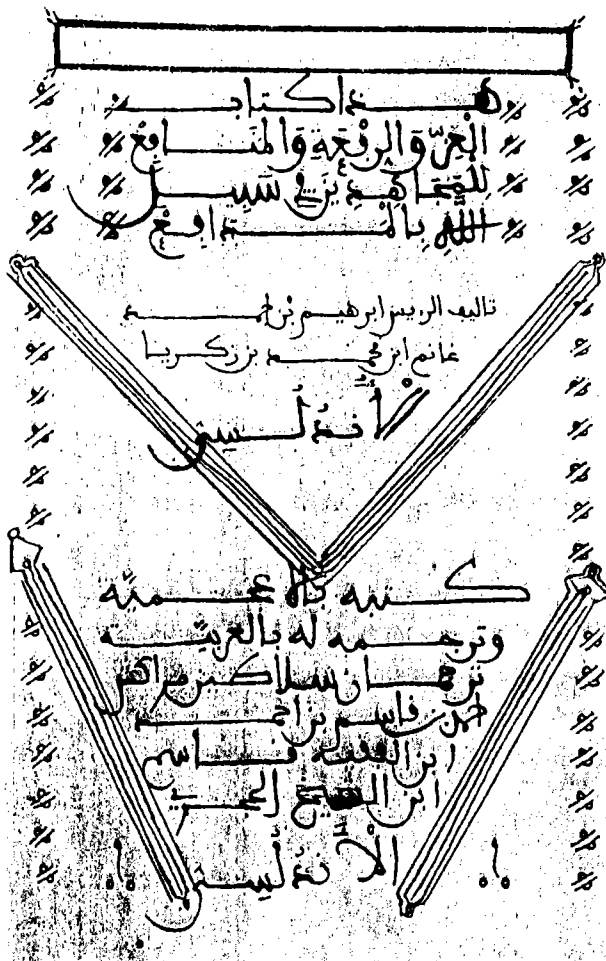 هذا كتاب
الْعِزّ وَالرِفْعَةِ وَالمَنَافِعْ
لِلْمُجَاهِدِينَ فِي سَبِيلِ
اللَّهِ بِالْمَدَافِعْ
تاليف الريس ابرهيم بن احمد
غانم ابن محمد بن زكريا
الأَنْدَلُسِي
كتبه بالاعجمية
وترجمه له بالعربيّة
ترجمان سلاطين مراكش
احمد بن قاسم بن احمد
ابن الفقيه قاسم
ابن الشيخ الحجري
الأنْدَلُسِي